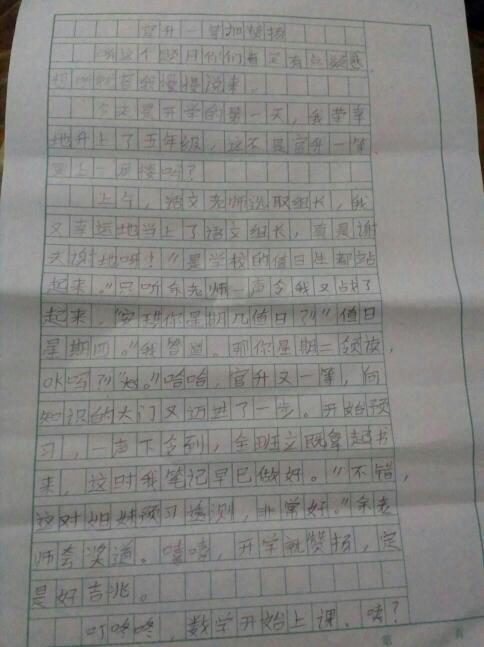 官升一等加赞扬
听这个题目你们肯定有点疑惑,
想听听吧我慢慢说来。
今天是开学的第一天,我荣幸
地升上了五年级,这不是官升一等
更上一层楼吗?
上午,语文老师选取组长,我
又幸运地当上了语文组长,真是谢
天谢地呀!"是学校的值日生都站
起来。"只听余老师一声令我又站了
起来。"安琪你是星期几值日?""值日
星期四。"我答道。那你星期二领读,
OK吗?""好。"哈哈,官升又一等,向
知识的大门又迈进了一步。开始预
习,一声下令到,全班立既拿起书
来,这时我笔记早已做好。"不错,
这对姐妹预习透测,非常好。"余老
师夸奖道。嘻嘻,开学就赞扬,定
是好吉兆。
叮咚咚,数学开始上课。咦?
第 页